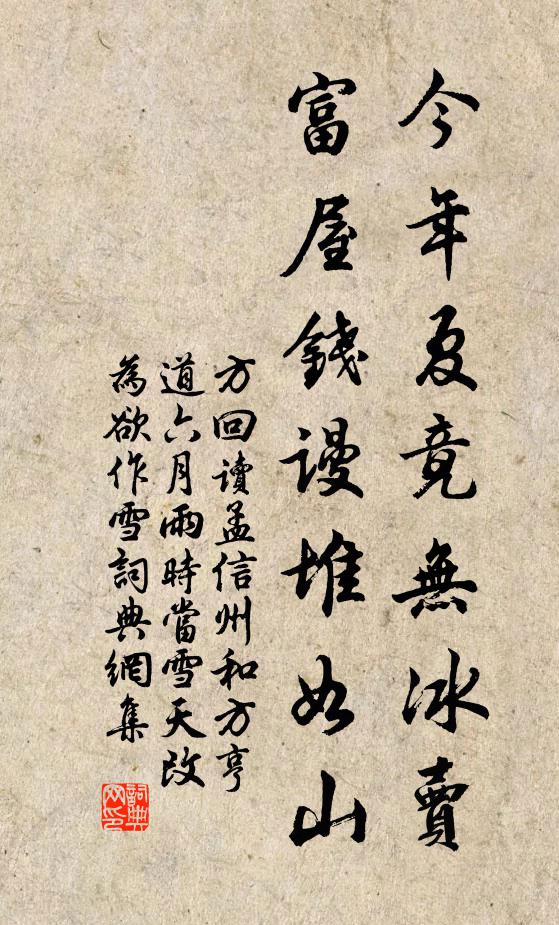 今年夏竟無冰賣
富屋錢謾堆如山
方回讀孟信州和方亨
道六月雨時當雪天改
為欲作雪詞典網集
詞典網印